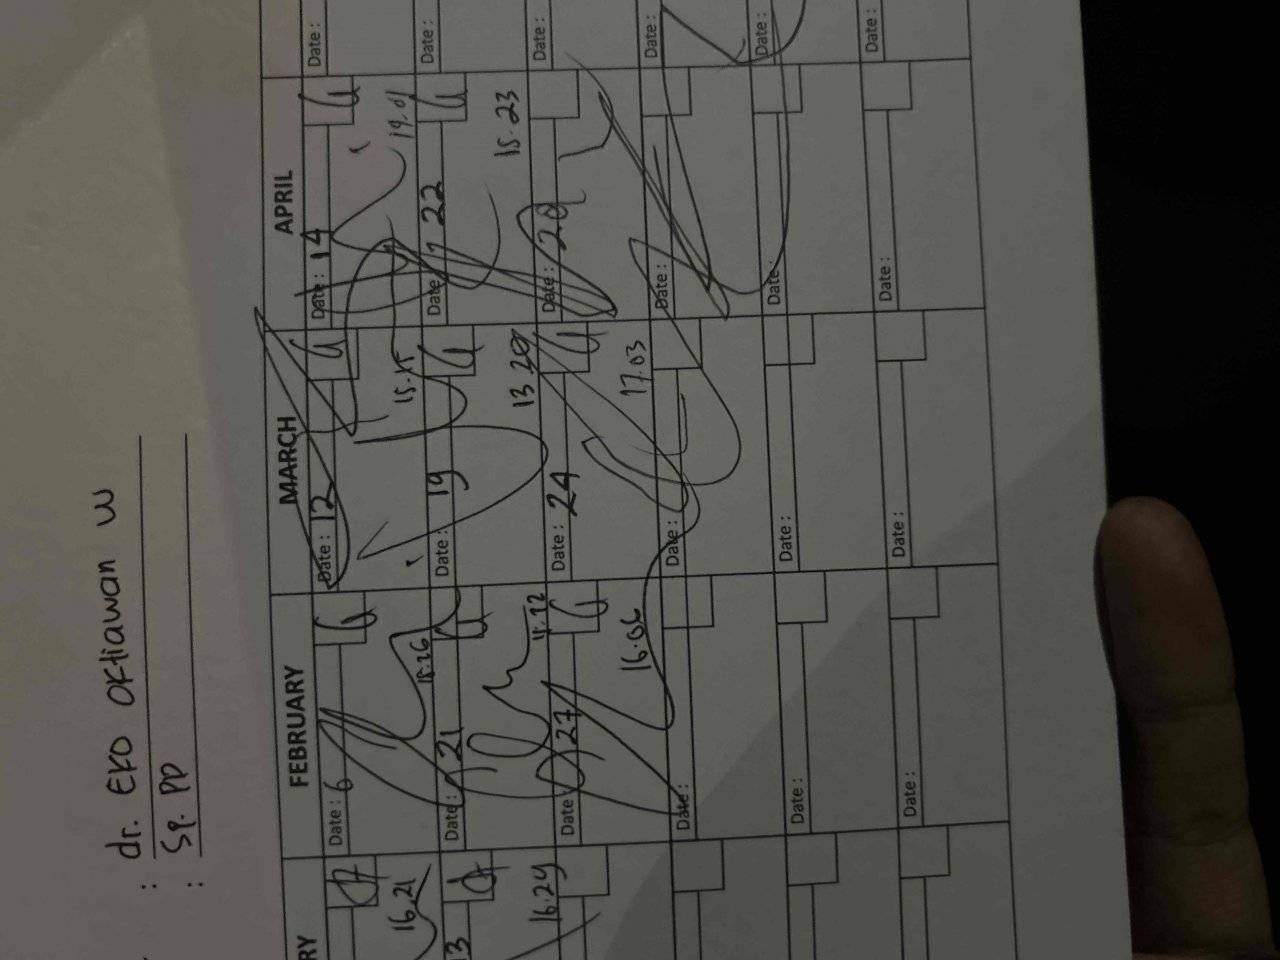 : dr. EKO OKtiawan W
: Sp. PD
RY
FEBRUARY
MARCH
APRIL
Date : 6
Date : 12
Date : 14
Date :
16.21
15.15
19.01
13
Date : 21
Date : 19
Date : 22
Date :
16.29
13.20
15.23
Date : 27
Date : 24
Date : 29
Date :
16.06
17.03
Date :
Date :
Date :
Date :
Date :
Date :
Date :
Date :
Date :
Date :
Date :
Date :